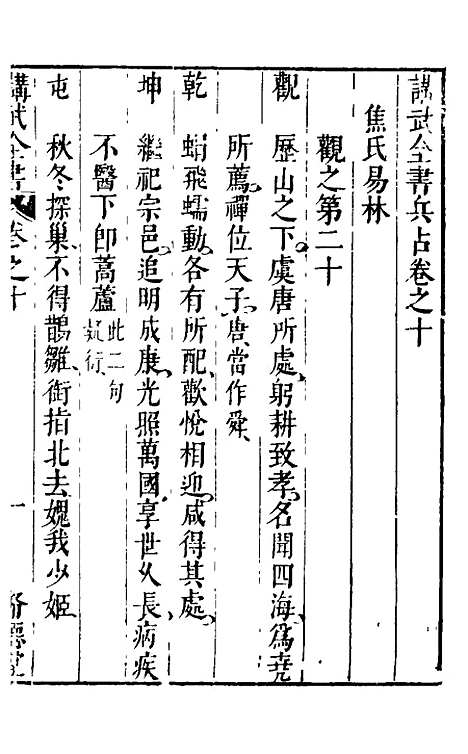 講武全書兵占卷之十
焦氏易林
觀之第二十
觀 歷山之下虞唐所處躬耕致孝名聞四海爲堯
所薦禪位天子唐當作舜
乾 蜎飛蠕動各有所配歡悅相迎咸得其處
坤 繼祀宗邑追明成康光照萬國享世乆長病疾
不醫下卽蒿蘆此二句
疑衍
屯 秋冬探巢不得鵲雛銜指北去媿我少姬
講武全書 卷之十 一